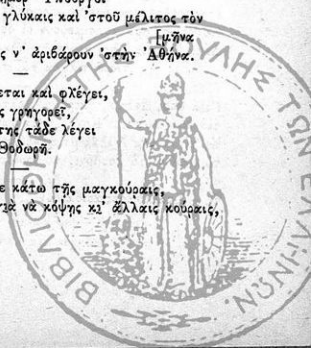 γλύκαις καὶ 'στοῦ μέλιτος τὸν
[μῆνα
ν' ἀριβάρουν 'στὴν Ἀθήνα.
καὶ φλέγει,
γρηγορεῖ,
τάδε λέγει
Θοδωρῆ.
κάτω τῆς μαγκούραις,
νὰ κόψῃς κι' ἄλλαις κούραις,
ΒΙΒΛΙΟΘΗΚΗ ΤΗΣ ΒΟΥΛΗΣ ΤΩΝ ΕΛΛΗΝΩΝ